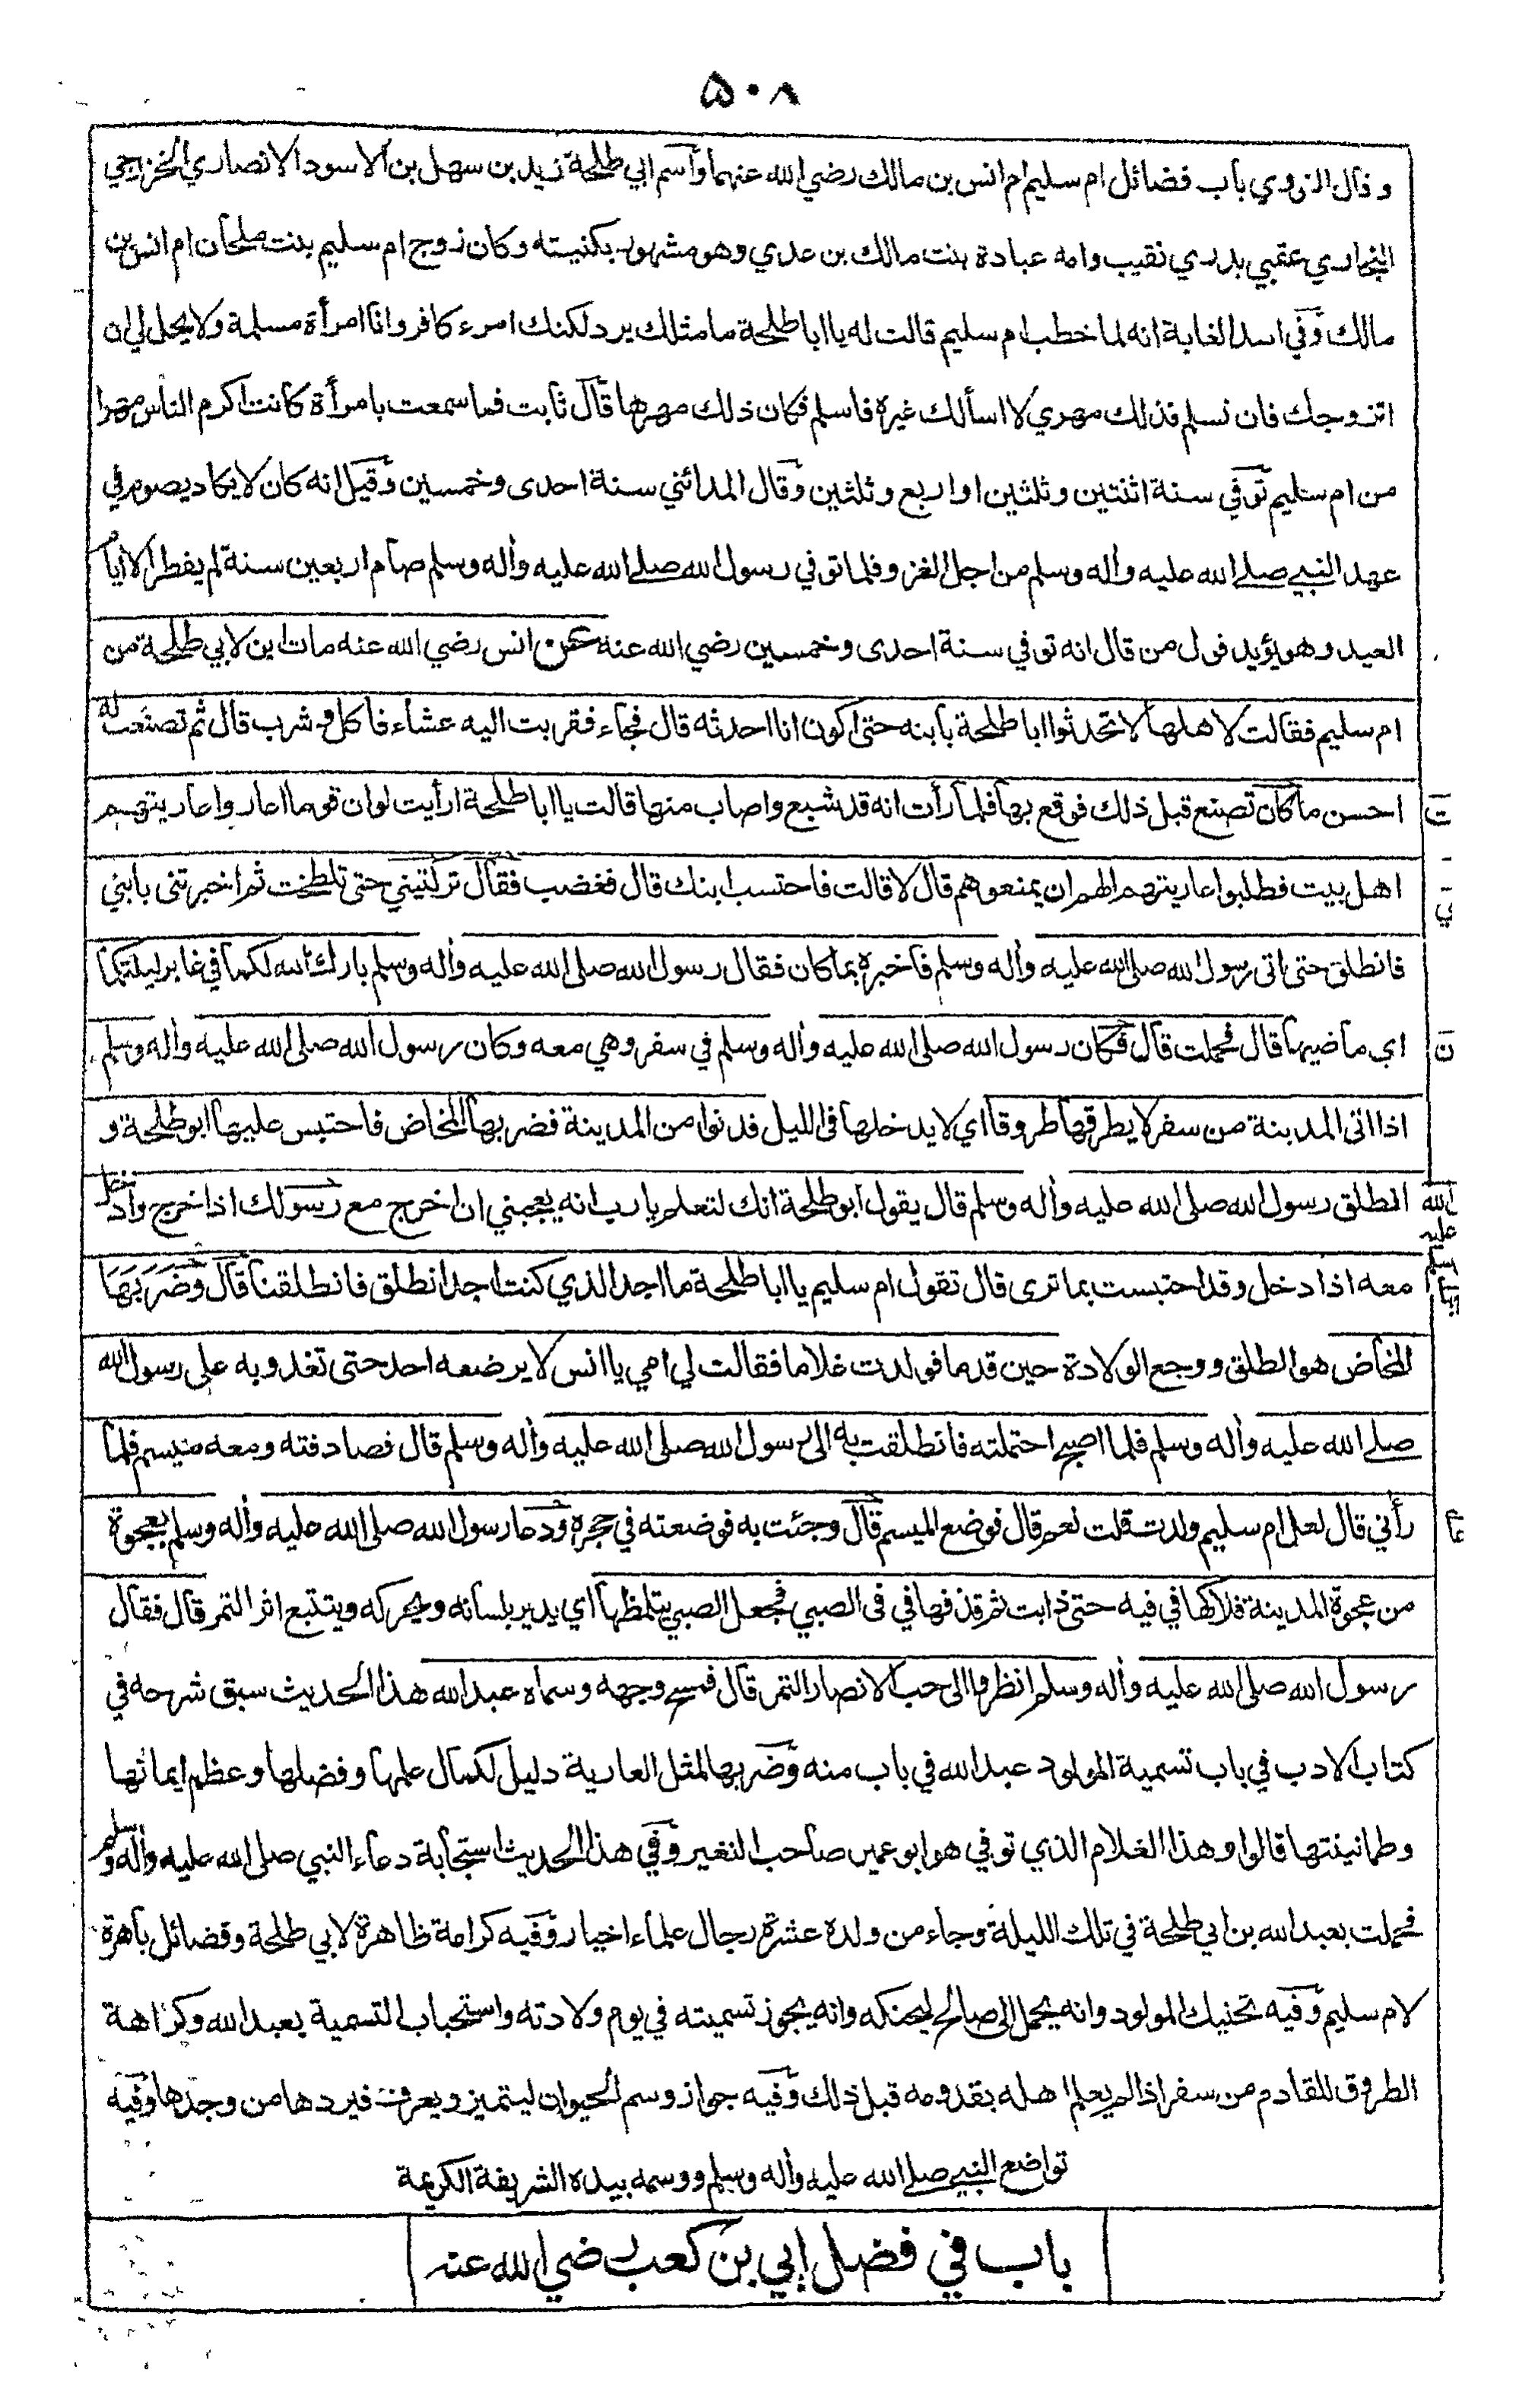 ۵۰۸
وقال النووي باب فضائل ام سليم ام انس بن مالك رضي الله عنهما واسم ابي طلحة زيد بن سهل بن الاسود الانصاري الخزرجي
النجاري عقبي بدري نقيب وامه عبادة بنت مالك بن عدي وهو مشهور بكنيته وكان زوج ام سليم بنت ملحان ام انس بن
مالك وفي اسد الغابة انه لما خطب ام سليم قالت له يا ابا طلحة ما مثلك يرد لكنك امرء كافر وانا امرأة مسلمة ولا يحل لي ان
اتزوجك فان تسلم فذلك مهري لا اسألك غيره فاسلم فكان ذلك مهرها قال ثابت فما سمعت بامرأة كانت اكرم الناس مهرا
من ام سليم توفي سنة اثنتين وثلثين او اربع وثلثين وقال المدائني سنة احدى وخمسين وقيل انه كان لا يكاد يصوم في
عهد النبي صلى الله عليه وأله وسلم من اجل الغزو فلما توفي رسول الله صلى الله عليه وأله وسلم صام اربعين سنة لم يفطر الا ايام
العيد وهو يؤيد قول من قال انه توفي سنة احدى وخمسين رضي الله عنه عن انس رضي الله عنه مات ابن لابي طلحة من
ام سليم فقالت لاهلها لا تحدثوا ابا طلحة بابنه حتى اكون انا احدثه قال فجاء فقربت اليه عشاء فاكل وشرب قال ثم تصنعت له
احسن ما كان تصنع قبل ذلك فوقع بها فلما رأت انه قد شبع واصاب منها قالت يا ابا طلحة ارأيت لو ان قوما اعاروا عاريتهم
اهل بيت فطلبوا عاريتهم الهم ان يمنعوهم قال لا قالت فاحتسب ابنك قال فغضب فقال تركتيني حتى تلطخت ثم اخبرتني بابني
فانطلق حتى اتى رسول الله صلى الله عليه وأله وسلم فاخبره بما كان فقال رسول الله صلى الله عليه وأله وسلم بارك الله لكما في غابر ليلتكما
اي ماضيها قال فحملت قال فكان رسول الله صلى الله عليه وأله وسلم في سفر وهي معه وكان رسول الله صلى الله عليه وأله وسلم
اذا اتى المدينة من سفر لا يطرقها طروقا اي لا يدخلها في الليل فدنوا من المدينة فضربها المخاض فاحتبس عليها ابو طلحة و
انطلق رسول الله صلى الله عليه وأله وسلم قال يقول ابو طلحة انك لتعلم يا رب انه يعجبني ان اخرج مع رسولك اذا خرج وادخل
معه اذا دخل وقد احتبست بما ترى قال تقول ام سليم يا ابا طلحة ما اجد الذي كنت اجد انطلق فانطلقنا قال وضربها
المخاض هو الطلق ووجع الولادة حين قدما فولدت غلاما فقالت لي امي يا انس لا يرضعه احد حتى تغدو به على رسول الله
صلى الله عليه وأله وسلم فلما اصبح احتملته فانطلقت به الى رسول الله صلى الله عليه وأله وسلم قال فصادفته ومعه ميسم فلما
رأني قال لعل ام سليم ولدت قلت نعم قال فوضع الميسم قال وجئت به فوضعته في حجره ودعا رسول الله صلى الله عليه وأله وسلم بعجوة
من عجوة المدينة فلاكها في فيه حتى ذابت ثم قذفها في في الصبي فجعل الصبي يتلمظها اي يدير بلسانه ويحركه ويتتبع اثر التمر قال فقال
رسول الله صلى الله عليه وأله وسلم انظروا الى حب الانصار التمر قال فمسح وجهه وسماه عبد الله هذا الحديث سبق شرحه في
كتاب الادب في باب تسمية المولود عبد الله في باب منه وضربها لمثل العارية دليل لكمال علمها وفضلها وعظم ايمانها
وطمانينتها قالوا وهذا الغلام الذي توفي هو ابو عمير صاحب النغير وفي هذا الحديث استجابة دعاء النبي صلى الله عليه وأله وسلم
فحملت بعبد الله بن ابي طلحة في تلك الليلة وجاء من ولده عشرة رجال علماء اخيار وفيه كرامة ظاهرة لابي طلحة وفضائل باهرة
لام سليم وفيه تحنيك المولود وانه يحمل الى صالح ليحنكه وانه يجوز تسميته في يوم ولادته واستحباب التسمية بعبد الله وكراهة
الطروق للقادم من سفر اذا لم يعلم اهله بقدومه قبل ذلك وفيه جواز وسم الحيوان ليتميز ويعرف فيردها من وجدها وفيه
تواضع النبي صلى الله عليه وأله وسلم ووسمه بيده الشريفة الكريمة
باب في فضل ابي بن كعب رضي الله عنه